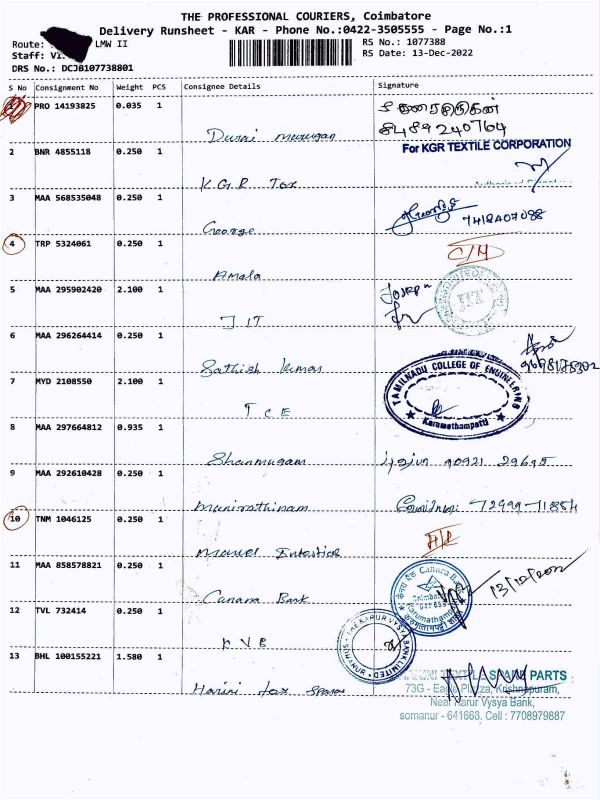 THE PROFESSIONAL COURIERS, Coimbatore
Delivery Runsheet - KAR - Phone No.:0422-3505555 - Page No.:1
Route: LMW II
RS No.: 1077388
Staff:
RS Date: 13-Dec-2022
DRS No.: DCJB107738801
S No Consignment No Weight PCS Consignee Details Signature
PRO 14193825 0.035 1
Durai murugan
8489240764
2 BNR 4855118 0.250 1
For KGR TEXTILE CORPORATION
K.G.R Tex
3 MAA 568535048 0.250 1
George
7418407088
4 TRP 5324061 0.250 1
Amala
5 MAA 295902420 2.100 1
JIT
Joseph
JIT
6 MAA 296264414 0.250 1
Sathish Kumar
7 MYD 2108550 2.100 1
TCE
TAMILNADU COLLEGE OF ENGINEERING
Karumathampatti
8 MAA 297664812 0.935 1
Shanmugam
9 MAA 292610428 0.250 1
Munirathinam
10 TNM 1046125 0.250 1
11 MAA 858578821 0.250 1
Canara Bank
Canara Bank
13/12/2022
12 TVL 732414 0.250 1
KVB
THE KARUR VYSYA BANK LIMITED
13 BHL 100155221 1.580 1
Harini tex spares
TEXTILE SPARE PARTS
73G - Eagle Plazza, Krishnapuram,
Near Karur Vysya Bank,
somanur - 641668. Cell : 7708979887